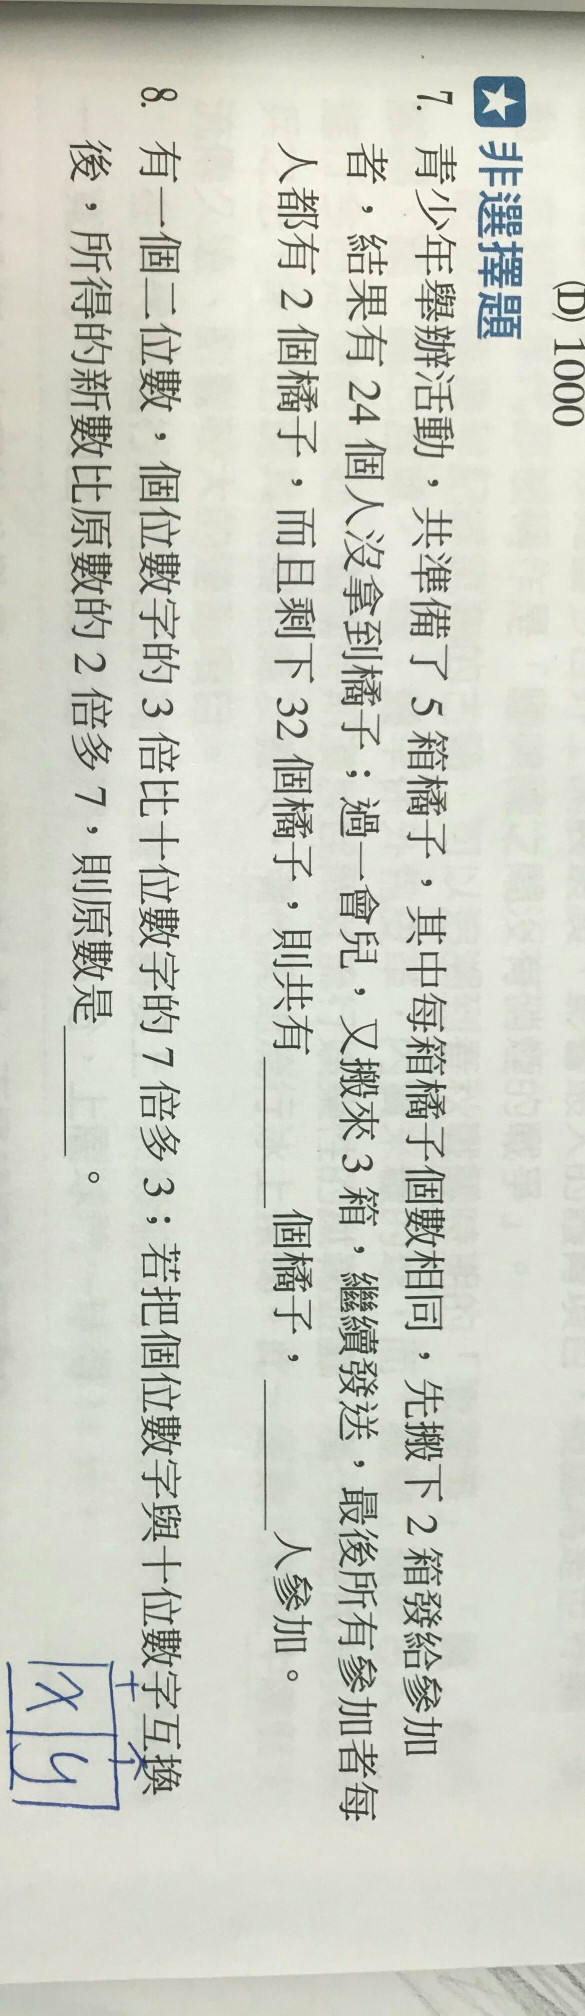 (D) 1000
★ 非選擇題
7. 青少年舉辦活動，共準備了 5 箱橘子，其中每箱橘子個數相同，先搬下 2 箱發給參加
者，結果有 24 個人沒拿到橘子；過一會兒，又搬來 3 箱，繼續發送，最後所有參加者每
人都有 2 個橘子，而且剩下 32 個橘子，則共有______個橘子，______人參加。
8. 有一個二位數，個位數字的 3 倍比十位數字的 7 倍多 3；若把個位數字與十位數字互換
後，所得的新數比原數的 2 倍多 7，則原數是______。
十 个
x y